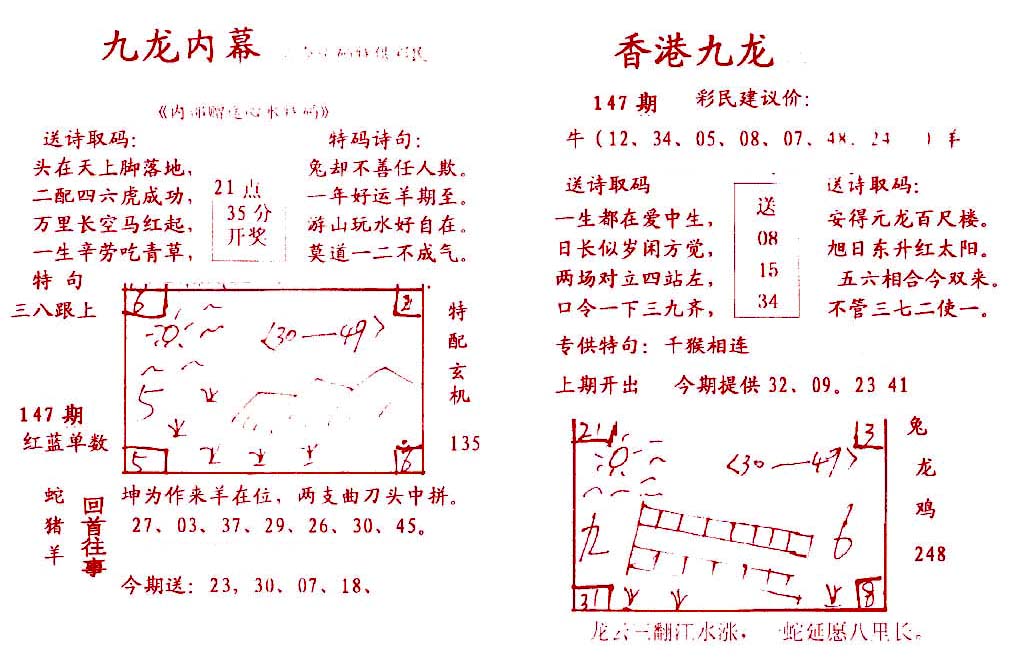 九龙内幕
《内部赠送心水特码》
送诗取码：
头在天上脚落地，
二配四六虎成功，
万里长空马红起，
一生辛劳吃青草，
21 点
35 分
开奖
特码诗句：
兔却不善任人欺。
一年好运羊期至。
游山玩水好自在。
莫道一二不成气。
特 句
三八跟上
6
2
〈30——49〉
5
5
6
特
配
玄
机
135
147 期
红蓝单数
蛇
猪
羊
回首往事
坤为作来羊在位，两支曲刀头中拼。
27、03、37、29、26、30、45。
今期送：23，30、07、18、
香港九龙
147 期
彩民建议价：
牛（12、34、05、08、07、48、24 ）羊
送诗取码
一生都在爱中生，
日长似岁闲方觉，
两场对立四站左，
口令一下三九齐，
送
08
15
34
送诗取码：
安得元龙百尺楼。
旭日东升红太阳。
五六相合今双来。
不管三七二使一。
专供特句：千猴相连
上期开出 今期提供 32、09。23 41
21
3
〈30——49〉
九
6
31
8
兔
龙
鸡
248
龙云三翻江水涨，一蛇延愿八里长。